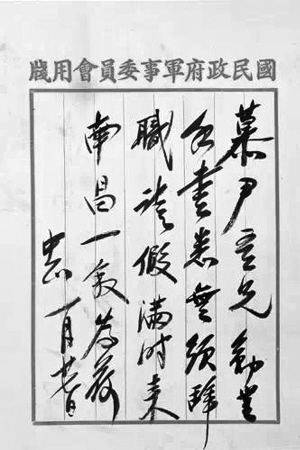 國民政府軍事委員會用牋
慕尹吾兄勛鑒
書悉無須辭
職請假滿時來
南昌一敘為荷
中正 一月廿七日